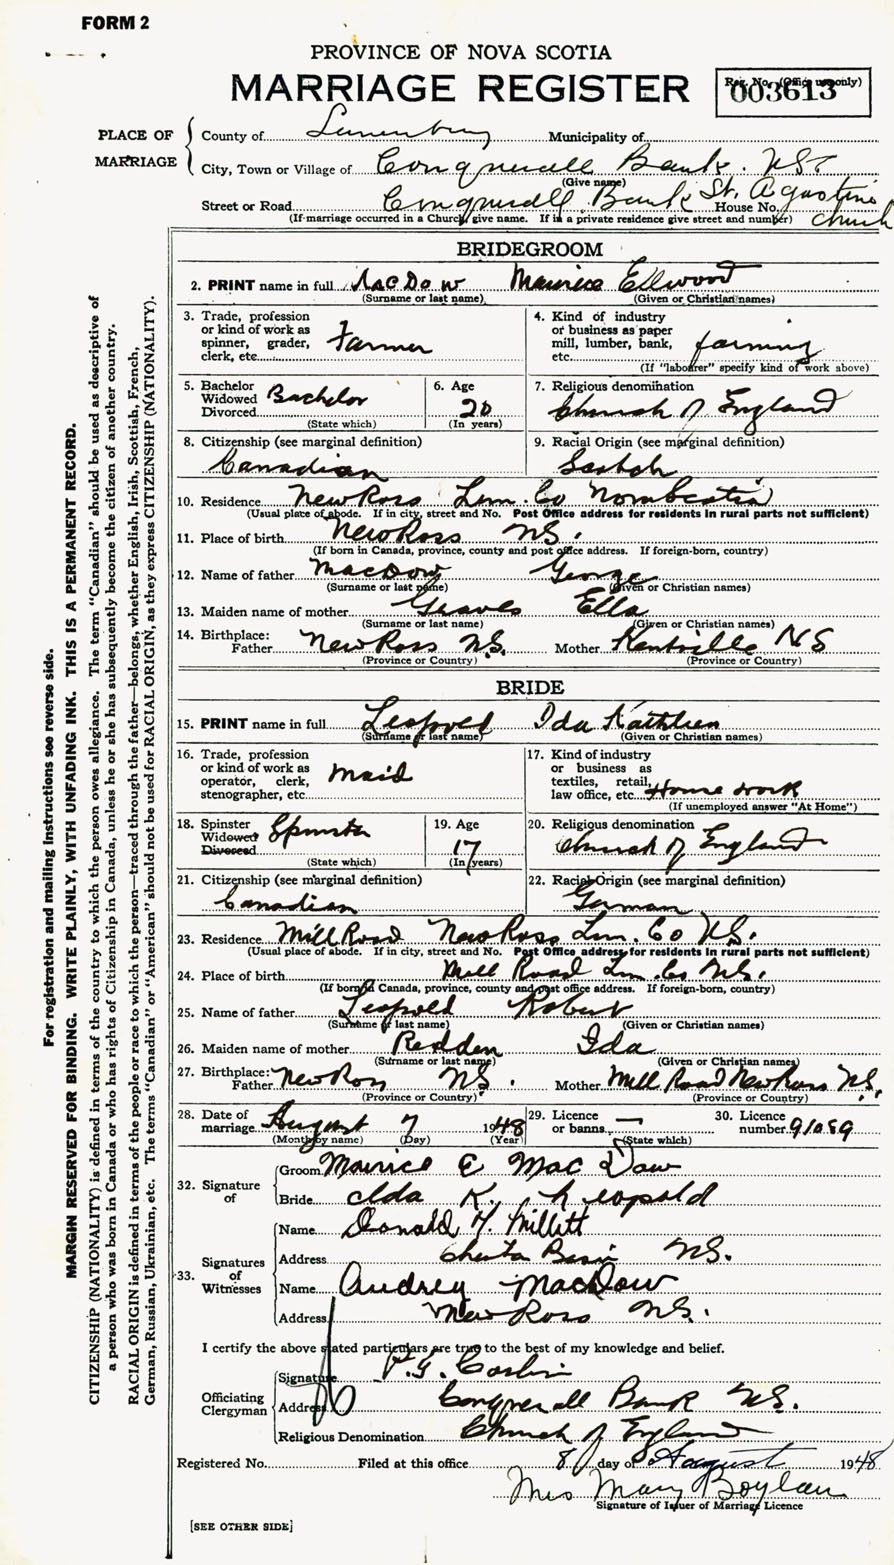 FORM 2
PROVINCE OF NOVA SCOTIA
MARRIAGE REGISTER
Reg. No. (Office use only)
003613
PLACE OF MARRIAGE
County of Lunenburg Municipality of
City, Town or Village of Conquerall Bank. NS
(Give name)
Street or Road Conquerall Bank St. Agustine church House No.
(If marriage occurred in a Church, give name. If in a private residence give street and number)
BRIDEGROOM
2. PRINT name in full MacDow Maurice Ellwood
(Surname or last name) (Given or Christian names)
3. Trade, profession or kind of work as spinner, grader, clerk, etc. Farmer
4. Kind of industry or business as paper mill, lumber, bank, etc. farming
(If "labourer" specify kind of work above)
5. Bachelor Widowed Divorced Bachelor
(State which)
6. Age 20
(In years)
7. Religious denomination Church of England
8. Citizenship (see marginal definition) Canadian
9. Racial Origin (see marginal definition) Scotch
10. Residence New Ross Lun. Co Nova Scotia
(Usual place of abode. If in city, street and No. Post Office address for residents in rural parts not sufficient)
11. Place of birth New Ross NS.
(If born in Canada, province, county and post office address. If foreign-born, country)
12. Name of father MacDow George
(Surname or last name) (Given or Christian names)
13. Maiden name of mother Graves Ella
(Surname or last name) (Given or Christian names)
14. Birthplace: Father New Ross N.S. Mother Kentville NS
(Province or Country) (Province or Country)
BRIDE
15. PRINT name in full Leopold Ida Kathleen
(Surname or last name) (Given or Christian names)
16. Trade, profession or kind of work as operator, clerk, stenographer, etc. Maid
17. Kind of industry or business as textiles, retail, law office, etc. Home work
(If unemployed answer "At Home")
18. Spinster Widowed Divorced Spinster
(State which)
19. Age 17
(In years)
20. Religious denomination Church of England
21. Citizenship (see marginal definition) Canadian
22. Racial Origin (see marginal definition) German
23. Residence Mill Road New Ross Lun. Co N.S.
(Usual place of abode. If in city, street and No. Post Office address for residents in rural parts not sufficient)
24. Place of birth Mill Road Lun. Co N.S.
(If born in Canada, province, county and post office address. If foreign-born, country)
25. Name of father Leopold Robert
(Surname or last name) (Given or Christian names)
26. Maiden name of mother Redden Ida
(Surname or last name) (Given or Christian names)
27. Birthplace: Father New Ross NS. Mother Mill Road New Ross N.S.
(Province or Country) (Province or Country)
28. Date of marriage August 7 1948
(Month by name) (Day) (Year)
29. Licence or banns —
(State which)
30. Licence number 91089
32. Signature of
Groom Maurice E Mac Dow
Bride Ida K. Leopold
33. Signatures of Witnesses
Name Donald H. Millett
Address Chester Basin NS.
Name Audrey MacDow
Address New Ross NS.
I certify the above stated particulars are true to the best of my knowledge and belief.
Officiating Clergyman
Signature
Address Conquerall Bank NS.
Religious Denomination Church of England
Registered No. Filed at this office 8 day of August 1948
Mrs Mary Boylan
Signature of Issuer of Marriage Licence
[SEE OTHER SIDE]
For registration and mailing instructions see reverse side.
MARGIN RESERVED FOR BINDING. WRITE PLAINLY, WITH UNFADING INK. THIS IS A PERMANENT RECORD.
CITIZENSHIP (NATIONALITY) is defined in terms of the country to which the person owes allegiance. The term "Canadian" should be used as descriptive of
a person who was born in Canada or who has rights of Citizenship in Canada, unless he or she has subsequently become the citizen of another country.
RACIAL ORIGIN is defined in terms of the people or race to which the person—traced through the father—belongs, whether English, Irish, Scottish, French,
German, Russian, Ukrainian, etc. The terms "Canadian" or "American" should not be used for RACIAL ORIGIN, as they express CITIZENSHIP (NATIONALITY).